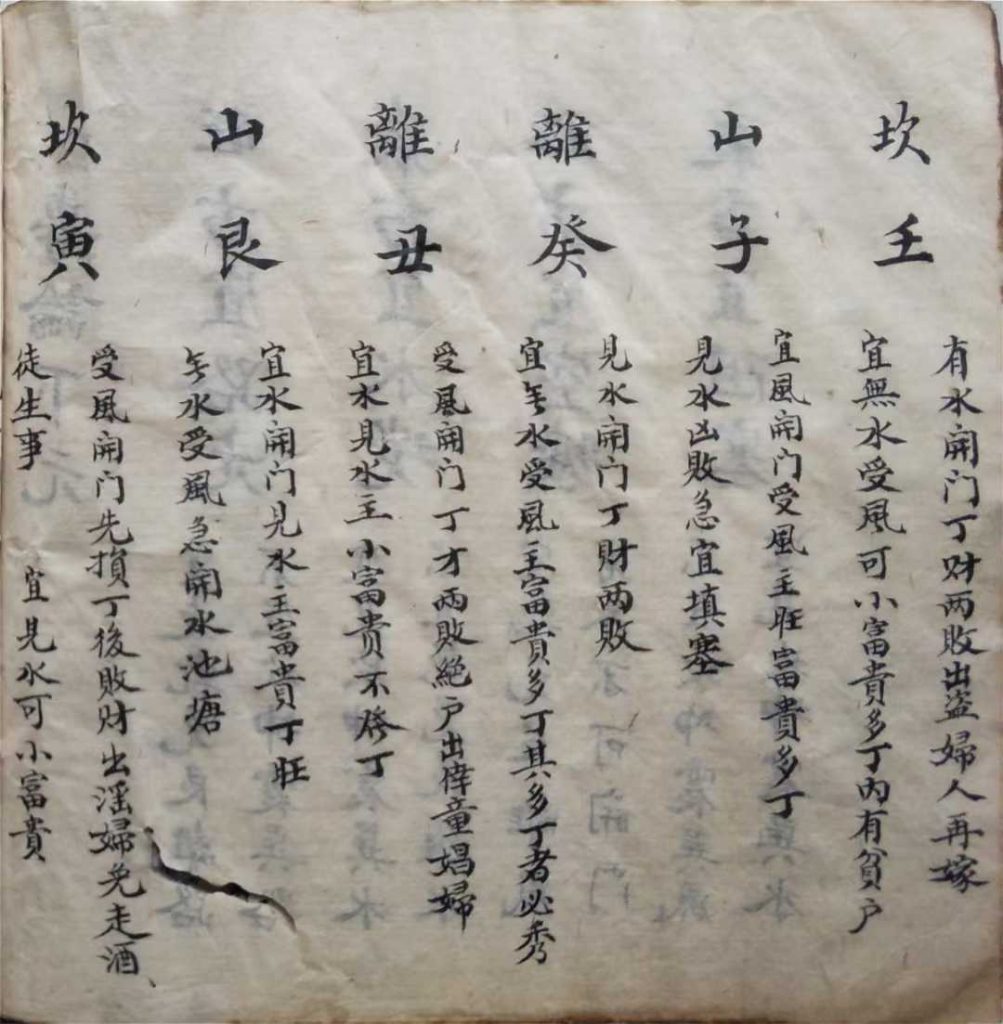 坎壬
有水開门丁财两败出盗婦人再嫁
宜無水受風可小富貴多丁内有貧户
山子
宜風開门受風主旺富貴多丁
見水凶敗急宜填塞
離癸
見水開门丁財两敗
宜无水受風主富貴多丁其多丁者必秀
離丑
受風開门丁才两敗絕户出倖童娼婦
宜水見水主小富貴不丁
山艮
宜水開门見水主富貴丁旺
无水受風急開水池塘
坎寅
受風開门先損丁後敗财出滛婦免走酒
徒生事 宜見水可小富貴